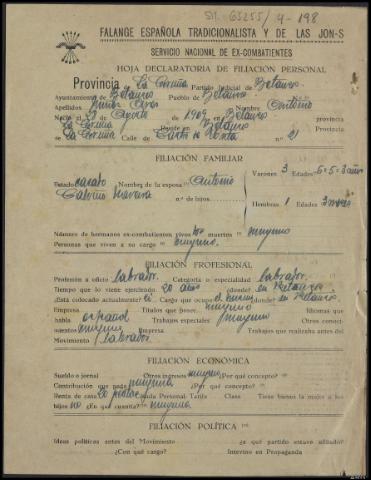 SM. 65255/4-198
FALANGE ESPAÑOLA TRADICIONALISTA Y DE LAS JON-S
SERVICIO NACIONAL DE EX-COMBATIENTES
HOJA DECLARATORIA DE FILIACIÓN PERSONAL
Provincia de La Coruña Partido Judicial de Betanzos
Ayuntamiento de Betanzos Pueblo de Betanzos
Apellidos Nombre Antonio
Nació el de Agosto de 1909 en Betanzos Provincia
La Coruña Reside en Betanzos provincia
La Coruña Calle de n.º 21
FILIACIÓN FAMILIAR
Varones 3 Edades 6-5-3 años
Estado casado Nombre de la esposa Antonia
n.º de hijos.
Hembras 1 Edades 3 meses
Número de hermanos ex-combatientes vivos no muertos ninguno
Personas que viven a su cargo ninguno.
FILIACIÓN PROFESIONAL
Profesión a oficio labrador. Categoría o especialidad labrador.
Tiempo que lo viene ejerciendo 20 años ¿dónde? en Betanzos
¿Está colocado actualmente? si. Cargo que ocupa ¿dónde? en Betanzos.
Empresa Títulos que posee ninguno Idiomas que
habla español Trabajos especiales ninguno Otros conoci-
mientos ninguno Empresa Trabajos que realizaba antes del
Movimiento labrador.
FILIACIÓN ECONÓMICA
Sueldo o jornal Otros ingresos ninguno ¿Por qué concepto?
Contribución que paga ninguna ¿Por qué concepto?
Renta de casa 20 pesetas Cédula Personal Tarifa Clase Tiene bienes la mujer o los
hijos no ¿En qué cuantía? ninguna
FILIACIÓN POLÍTICA
Ideas políticas antes del Movimiento ¿a qué partido estuvo afiliado?
¿Con qué cargo? Intervino en Propaganda